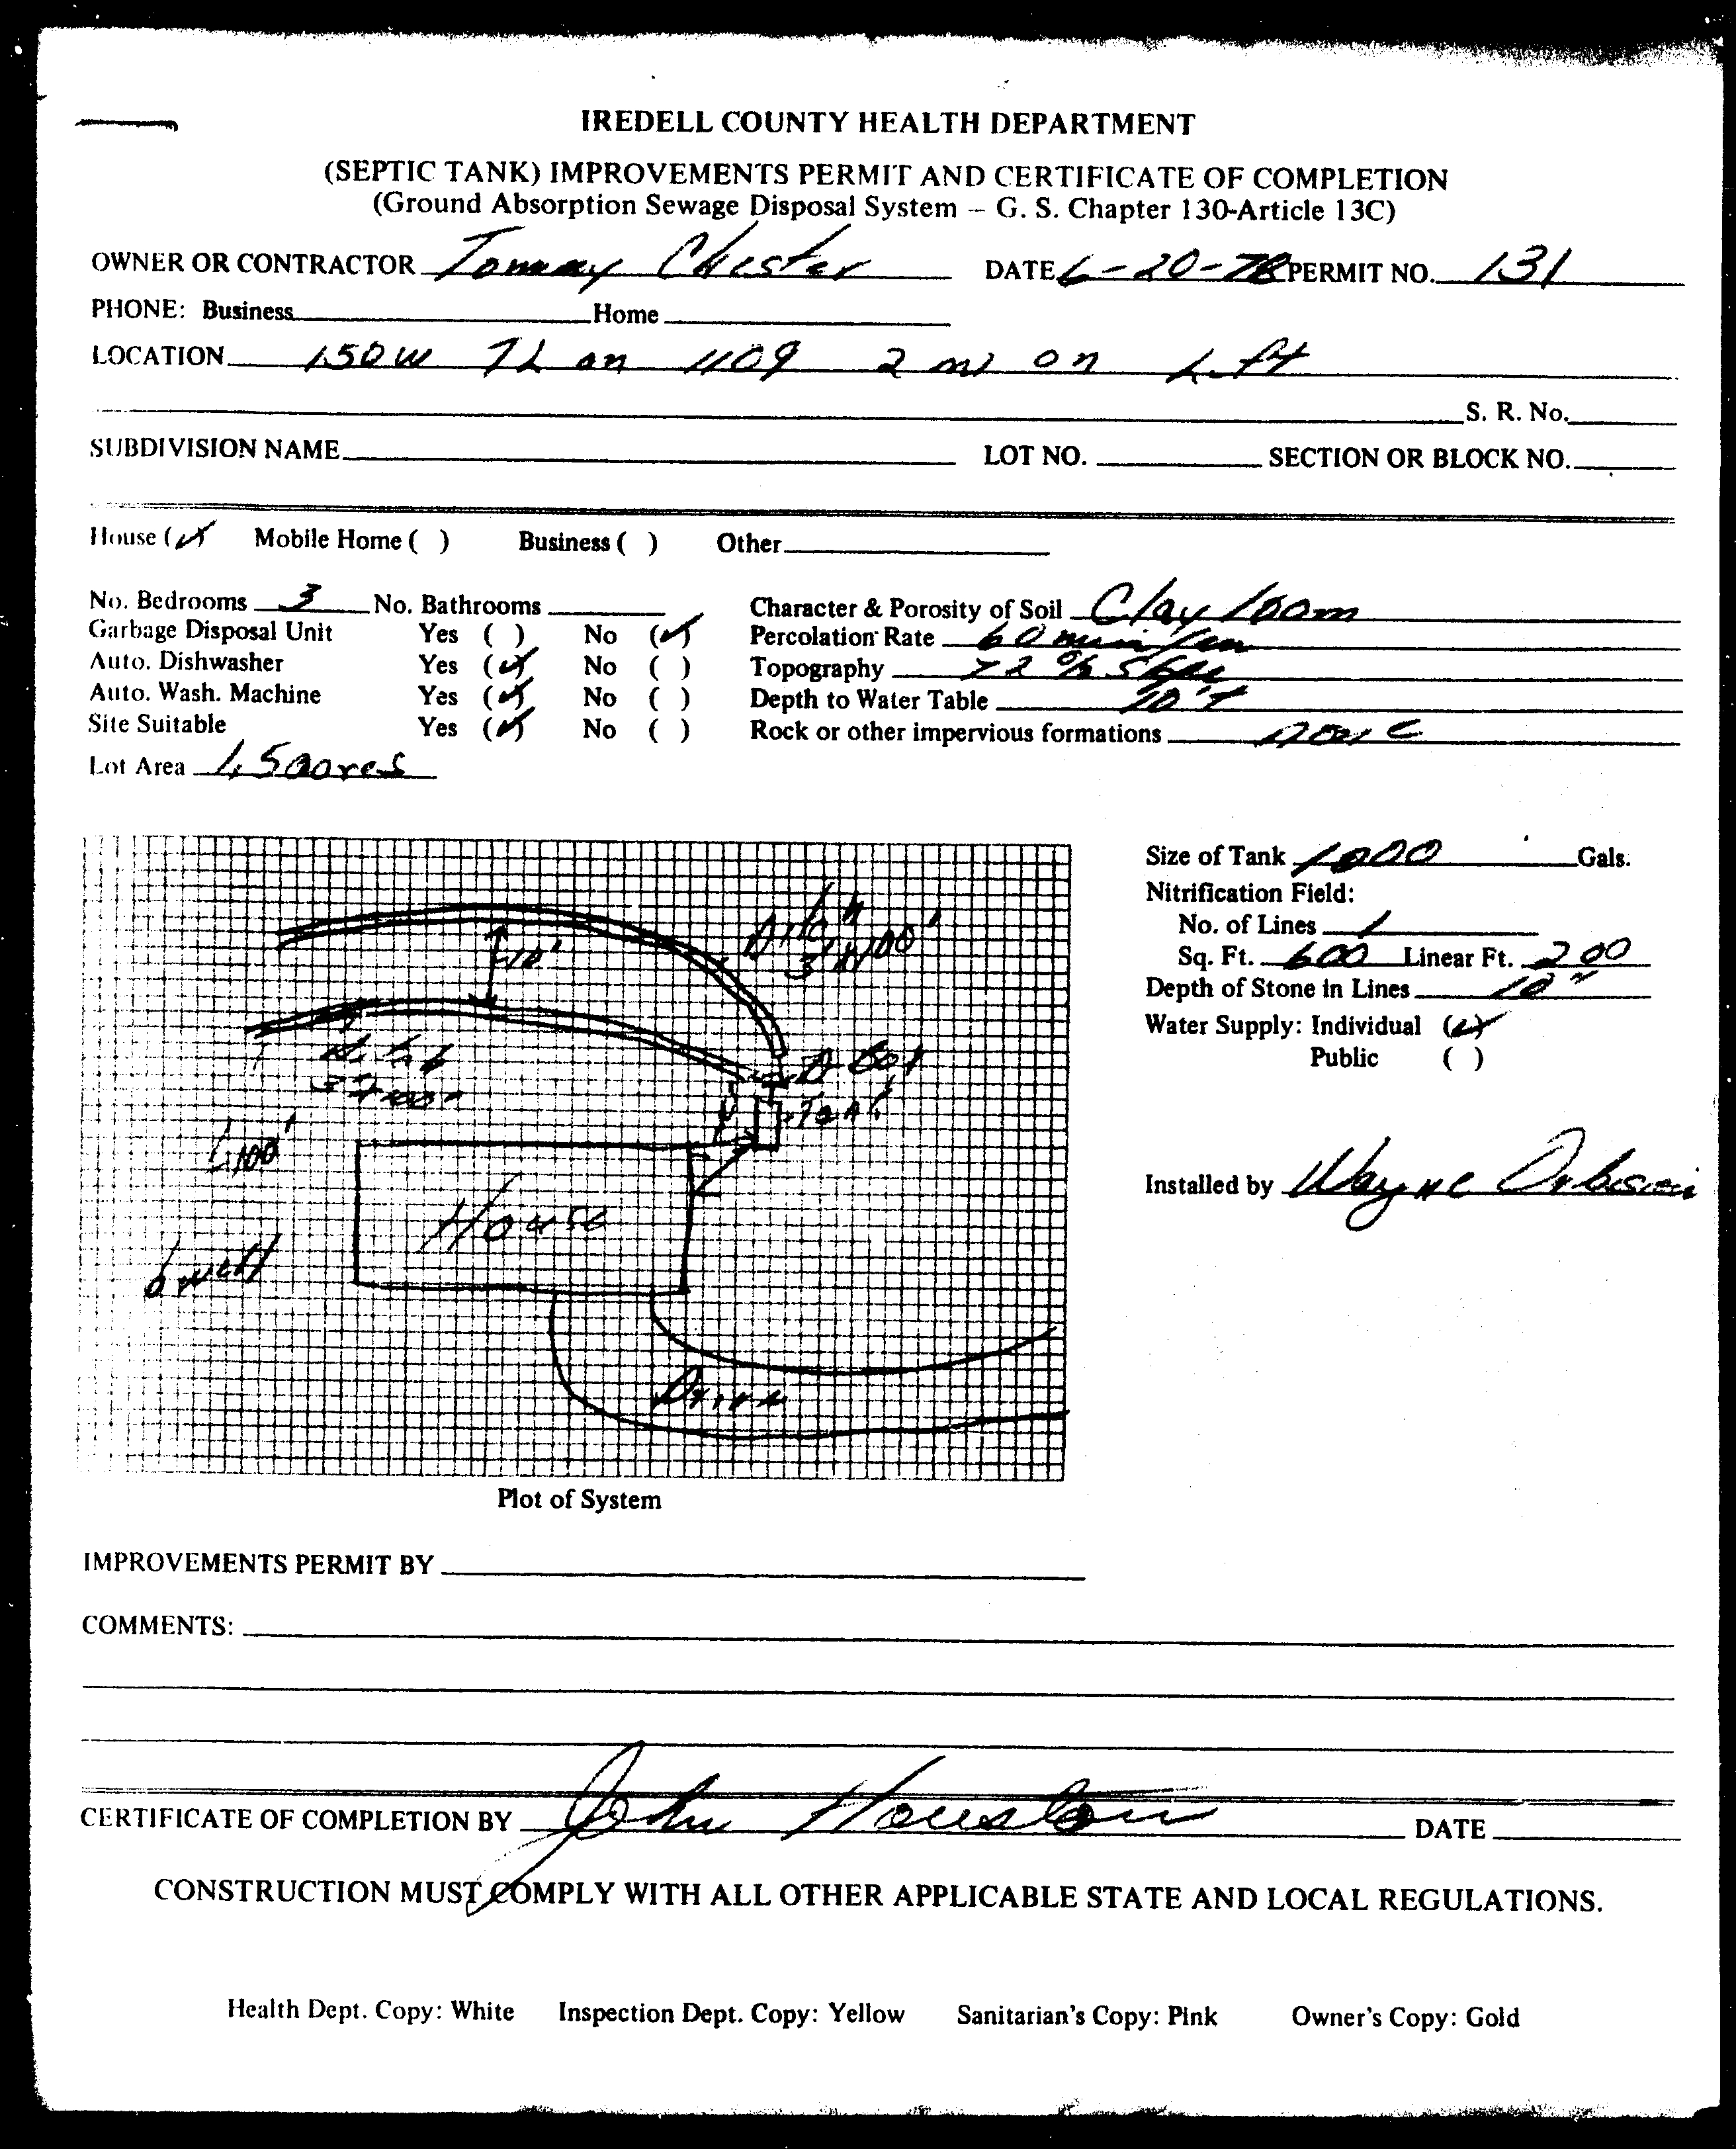 IREDELL COUNTY HEALTH DEPARTMENT
(SEPTIC TANK) IMPROVEMENTS PERMIT AND CERTIFICATE OF COMPLETION
(Ground Absorption Sewage Disposal System – G. S. Chapter 130-Article 13C)
OWNER OR CONTRACTOR Tommy Chester DATE 6-20-78 PERMIT NO. 131
PHONE: Business Home
LOCATION 150W TL on 1109 2 mi on Left
S. R. No.
SUBDIVISION NAME LOT NO. SECTION OR BLOCK NO.
House (✓) Mobile Home ( ) Business ( ) Other
No. Bedrooms 3 No. Bathrooms Character & Porosity of Soil Clay loam
Garbage Disposal Unit Yes ( ) No (✓) Percolation Rate 60 min/in
Auto. Dishwasher Yes (✓) No ( ) Topography >2 % Slope
Auto. Wash. Machine Yes (✓) No ( ) Depth to Water Table 10'+
Site Suitable Yes (✓) No ( ) Rock or other impervious formations none
Lot Area 1.5 acres
Size of Tank 1000 Gals.
Nitrification Field:
No. of Lines 1
Sq. Ft. 600 Linear Ft. 200
Depth of Stone in Lines 10"
Water Supply: Individual (✓)
Public ( )
Installed by Wayne
3'x100'
10'
D Box
Tank
100'
House
well
Drive
Plot of System
IMPROVEMENTS PERMIT BY
COMMENTS:
CERTIFICATE OF COMPLETION BY John Houston DATE
CONSTRUCTION MUST COMPLY WITH ALL OTHER APPLICABLE STATE AND LOCAL REGULATIONS.
Health Dept. Copy: White Inspection Dept. Copy: Yellow Sanitarian's Copy: Pink Owner's Copy: Gold